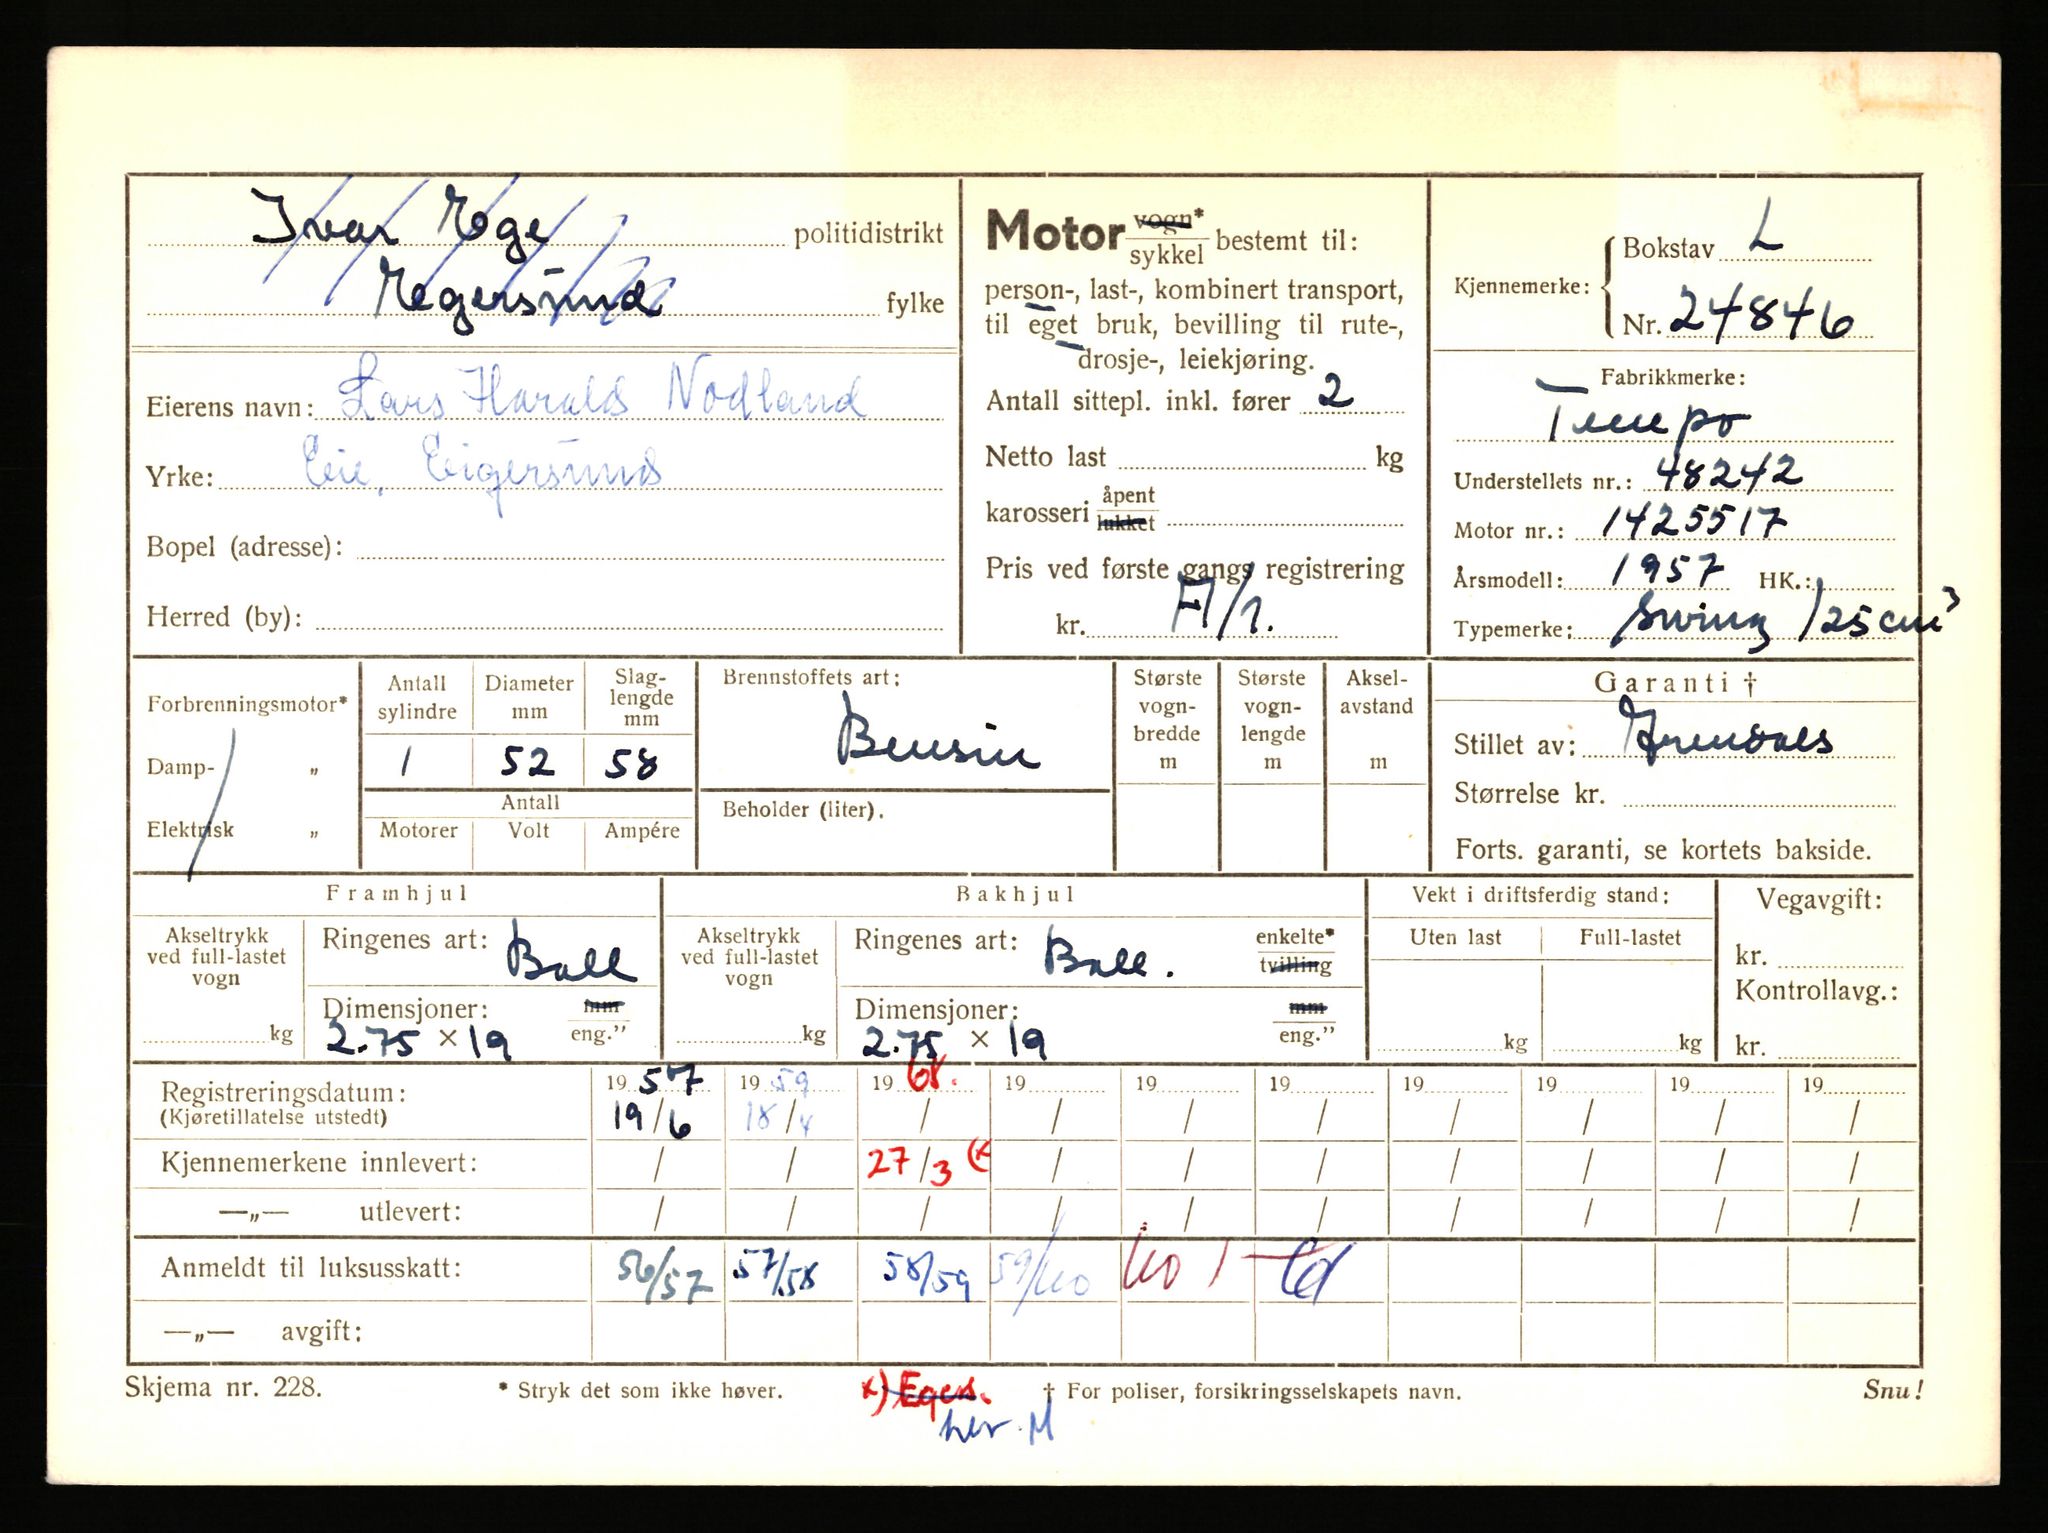 Ivar Ege politidistrikt
Egersund fylke
Eierens navn: Lars Harald Nodland
Yrke: Eie, Eigersund
Bopel (adresse):
Herred (by):
Motor vogn* / sykkel bestemt til:
person-, last-, kombinert transport,
til eget bruk, bevilling til rute-,
drosje-, leiekjøring.
Antall sittepl. inkl. fører 2
Netto last kg
karosseri åpent / lukket
Pris ved første gangs registrering
kr. A/1.
Kjennemerke: Bokstav L
Nr. 24846
Fabrikkmerke:
Tempo
Understellets nr.: 48242
Motor nr.: 1425517
Årsmodell: 1957 HK.:
Typemerke: Swing 125 cm³
Forbrenningsmotor*
Damp- „
Elektrisk „
Antall sylindre Diameter mm Slag-lengde mm
1 52 58
Antall
Motorer Volt Ampére
Brennstoffets art:
Bensin
Beholder (liter).
Største vogn-bredde m
Største vogn-lengde m
Aksel-avstand m
Garanti †
Stillet av: Arendals
Størrelse kr.
Forts. garanti, se kortets bakside.
Framhjul
Akseltrykk ved full-lastet vogn kg
Ringenes art: Ball
Dimensjoner: mm / eng.”
2.75 × 19
Bakhjul
Akseltrykk ved full-lastet vogn kg
Ringenes art: Ball. enkelte* / tvilling
Dimensjoner: mm / eng.”
2.75 × 19
Vekt i driftsferdig stand:
Uten last Full-lastet
kg kg
Vegavgift:
kr.
Kontrollavg.:
kr.
Registreringsdatum: 19 57 19 59 19 68. 19 19 19 19 19 19 19
(Kjøretillatelse utstedt) 19/6 18/4 / / / / / / / /
Kjennemerkene innlevert: / / 27/3 (x / / / / / / /
—„— utlevert: / / / / / / / / / /
Anmeldt til luksusskatt: 56/57 57/58 58/59 59/60 60 /
—„— avgift:
Skjema nr. 228. * Stryk det som ikke høver. x) Egers. † For poliser, forsikringsselskapets navn. Snu!